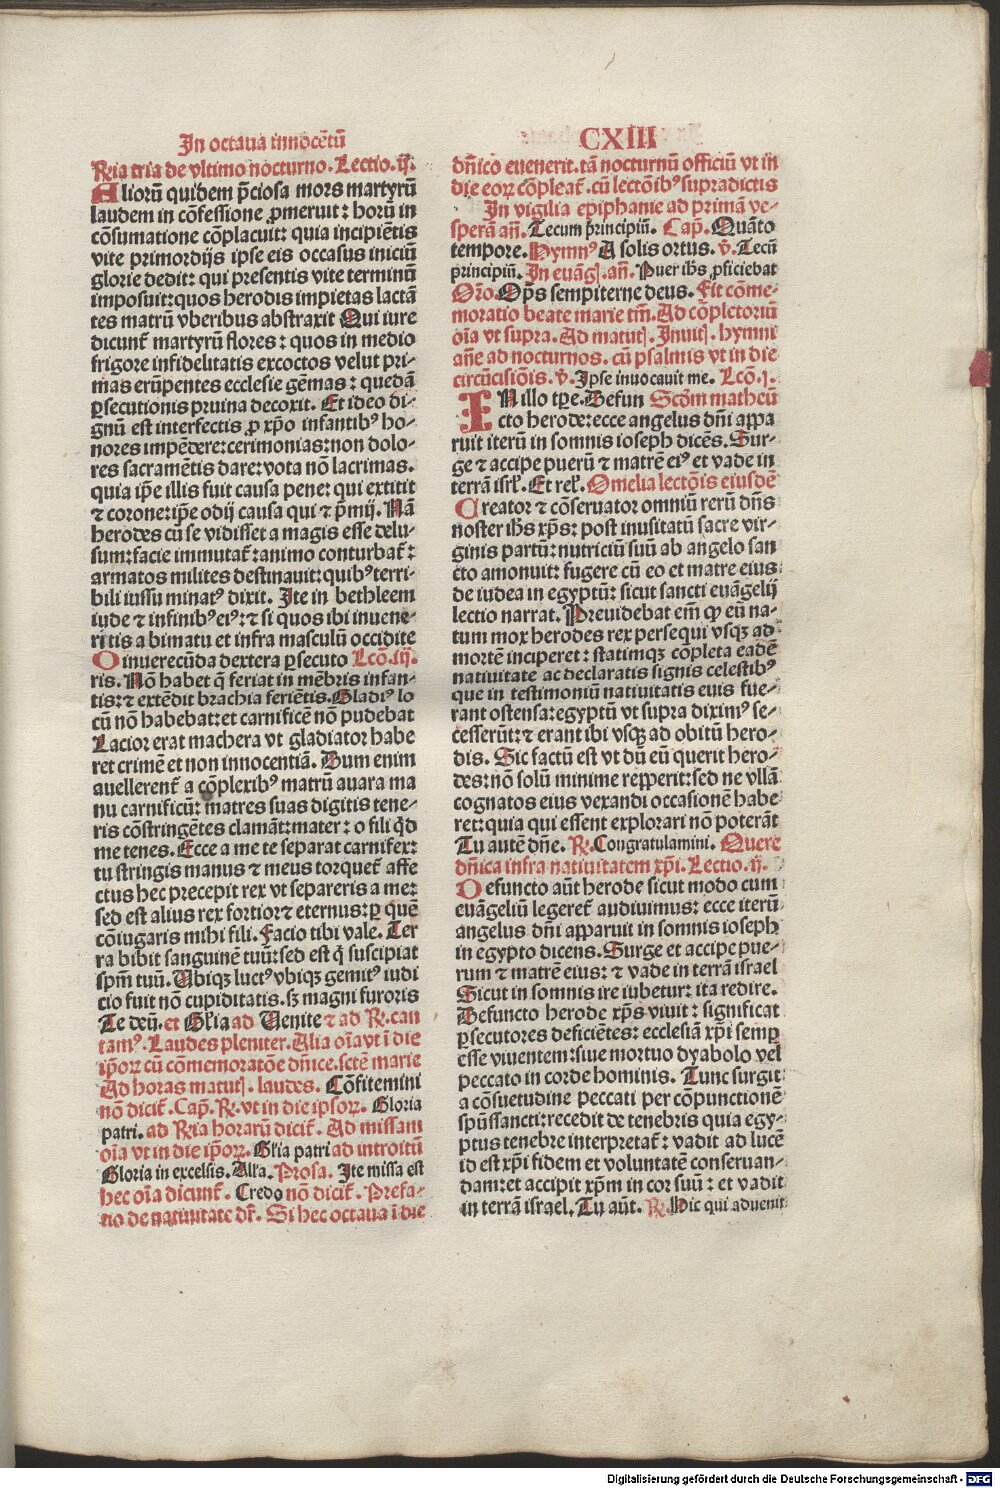 In octaua innocẽtũ
CXIII
R̃ia tria de vltimo nocturno. Lectio. ij.
Aliorũ quidem p̃ciosa mors martyrũ
laudem in cõfessione ꝓmeruit: horũ in
cõsumatione cõplacuit: quia incipiẽtis
vite primordijs ipse eis occasus iniciũ
glorie dedit: qui presentis vite terminũ
imposuit:quos herodis impietas lactã
tes matrũ vberibus abstraxit Qui iure
dicunt᷑ martyrũ flores: quos in medio
frigore infidelitatis excoctos velut pri⸗
mas erũpentes ecclesie gẽmas: quedã
ꝑsecutionis pruina decoxit. Et ideo di⸗
gnũ est interfectis ꝓ xp̃o infantibꝰ ho⸗
nores impẽdere:cerimonias:non dolo⸗
res sacramẽtis dare:vota nõ lacrimas.
quia ip̃e illis fuit causa pene: qui extitit
⁊ corone:ip̃e odij causa qui ⁊ p̃mij. Nã
herodes cũ se vidisset a magis esse delu⸗
sum:facie immutat᷑:animo conturbat᷑:
armatos milites destinauit:quibꝰ terri⸗
bili iussu minatꝰ dixit. Ite in bethleem
iude ⁊ infinibꝰ eiꝰ:⁊ si quos ibi inuene⸗
ritis a bimatu et infra masculũ occidite
O inuerecũda dextera ꝑsecuto Lcõ.iij.
ris. Nõ habet q̃ feriat in mẽbris infan⸗
tis:⁊ extẽdit brachia feriẽtis. Gladiꝰ lo
cũ non habebat:et carnificẽ nõ pudebat
Lacior erat machera vt gladiator habe
ret crimẽ et non innocentiã. Dum enim
auellerent᷑ a cõplexibꝰ matrũ auara ma
nu carnificũ: matres suas digitis tene⸗
ris cõstringẽtes clamãt:mater: o fili q̃d
me tenes. Ecce a me te separat carnifex:
tu stringis manus ⁊ meus torquet᷑ affe
ctus hec precepit rex vt separeris a me:
sed est alius rex fortior⁊ eternus:ꝑ quẽ
cõiugaris mihi fili. Facio tibi vale. Ter
ra bibit sanguinẽ tuũ:sed est q̃ suscipiat
sp̃m tuũ. Ubiqꝫ luctꝰ vbiqꝫ gemitꝰ iudi
cio fuit nõ cupiditatis. sꝫ magni furoris
Te deũ. et Gl̃ia ad Uenite ⁊ ad R̃. can
tamꝰ. Laudes pleniter. Alia oĩa vt ĩ die
ip̃oꝝ cũ cõmemoratõe dñice.sctẽ marie
Ad horas matutꝭ. laudes. Cõfitemini
nõ dicit᷑. Cap̃. R̃. vt in die ipsoꝝ. Gloria
patri. ad R̃ia horarũ dicit᷑. Ad missam
oĩa vt in die ip̃oꝝ. Gl̃ia patri ad introitũ
Gloria in excelsis. Alľa. Prosa. Ite missa est
hec oĩa dicunt᷑. Credo nõ dicit᷑. Prefa⸗
tio de natiuitate dr̃. Si hec octaua ĩ die
dñico euenerit. tã nocturnũ officiũ vt in
die eoꝝ cõpleat᷑. cũ lectõibꝰ supradictis
In vigilia epiphanie ad primã ve⸗
sperã añ. Tecum p̃rincipiũ. Cap̃. Quãto
tempore. Hymnꝰ A solis ortus. v̄. Tecũ
principiũ. In euãgꝭ. añ. Puer ih̃s ꝓficiebat
Or̃o. Op̃s sempiterne deus. Fit cõme⸗
moratio beate marie tm̃. Ad cõpletoriũ
oĩa vt supra. Ad matutꝭ. Inuitꝭ. hymni
añe ad nocturnos. cũ psalmis vt in die
circũcisiõis. v̄. Ipse inuocauit me. Lcõ.j.
IN illo tp̃e. Defun Scõm matheũ
cto herode:ecce angelus dñi appa
ruit iterũ in somnis ioseph dicẽs. Sur⸗
ge ⁊ accipe puerũ ⁊ matrẽ eiꝰ et vade in
terrã isrľ. Et reľ. Omelia lectõis eiusdẽ
Creator ⁊ cõseruator omniũ rerũ dñs
noster ih̃s xp̃s: post inusitatũ sacre vir⸗
ginis partũ: nutriciũ suũ ab angelo san
cto amonuit: fugere cũ eo et matre eius
de iudea in egyptũ: sicut sancti euãgelij
lectio narrat. Preuidebat em̃ ꝙ eũ na⸗
tum mox herodes rex persequi vsqꝫ ad
mortẽ inciperet: statimqꝫ cõpleta eadẽ
natiuitate ac declaratis signis celestibꝰ
que in testimoniũ natiuitatis euis fue⸗
rant ostensa:egyptũ vt supra diximꝰ se⸗
cesserũt:⁊ erant ibi vsqꝫ ad obitũ hero⸗
dis. Sic factũ est vt dũ eũ querit hero⸗
des:nõ solũ minime repperit:sed ne vllã
cognatos eius vexandi occasionẽ habe
ret:quia qui essent explorari nõ poterãt
Tu autẽ dñe. R̃. Congratulamini. Quere
dñica infra natiuitatem xp̃i. Lectio. ij.
Defuncto aũt herode sicut modo cum
euãgeliũ legeret᷑ audiuimus: ecce iterũ
angelus dñi apparuit in somnis ioseph
in egypto dicens. Surge et accipe pue⸗
rum ⁊ matrẽ eius: ⁊ vade in terrã israel
Sicut in somnis ire iubetur: ita redire.
Defuncto herode xp̃s viuit: significat
ꝑsecutores deficiẽtes: ecclesiã xp̃i semꝑ
esse viuentem:siue mortuo dyabolo vel
peccato in corde hominis. Tunc surgit
a cõsuetudine peccati per cõpunctionẽ
spũssancti:recedit de tenebris quia egy⸗
ptus tenebre interpretat᷑: vadit ad lucẽ
id est xp̃i fidem et voluntatẽ conseruan⸗
dam:et accipit xp̃m in cor suũ: et vadit
in terrã israel. Tu aũt. R̃. Hic qui aduenit
Digitalisierung gefördert durch die Deutsche Forschungsgemeinschaft - DFG